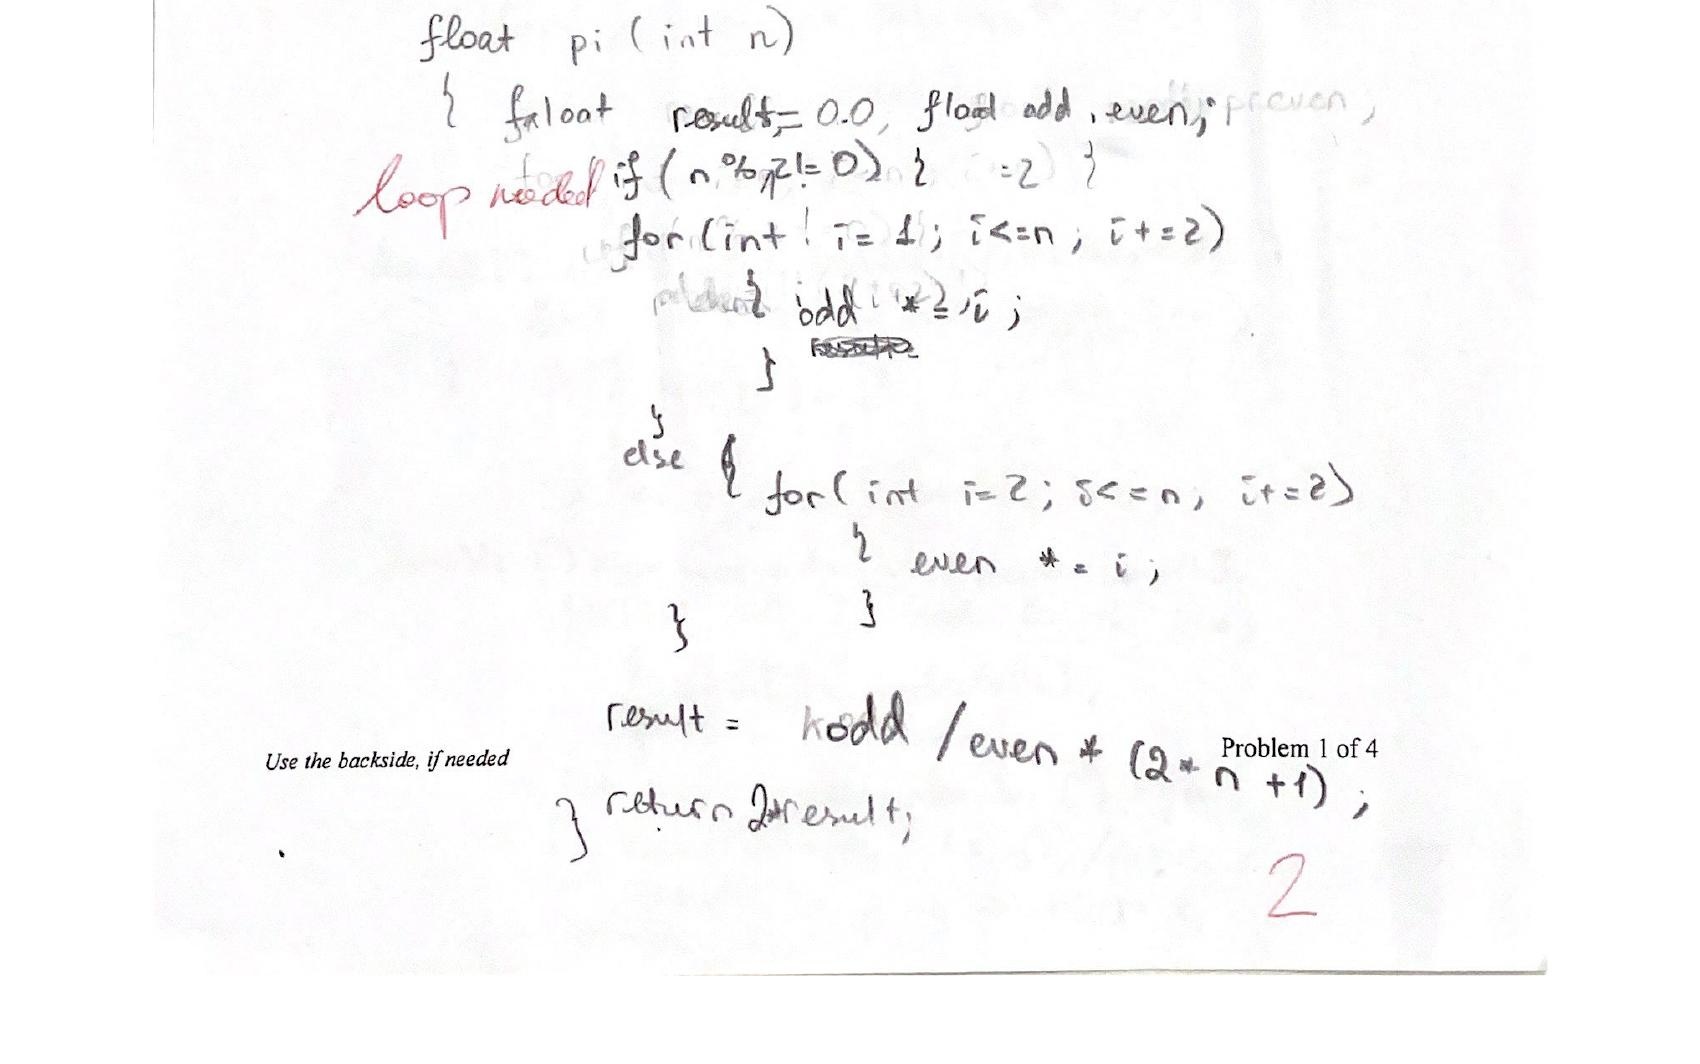 float pi ( int n)
{ float result = 0.0, float odd, even;
loop needed if ( n % 2 != 0) {
for (int i = 1; i <= n ; i += 2)
{ odd *= i ;
}
}
else {
for ( int i = 2 ; i <= n ; i += 2)
{ even *= i ;
}
}
result = odd / even * (2 * n + 1) ;
Use the backside, if needed
Problem 1 of 4
} return 2*result;
2